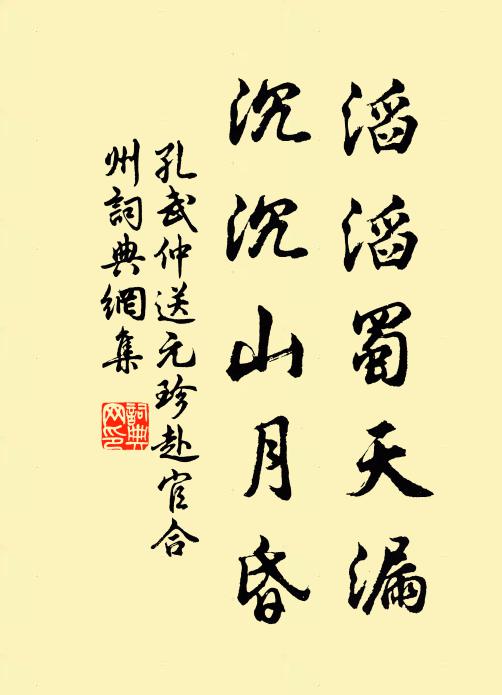 滔滔蜀天漏
沉沉山月昏
孔武仲送元珍赴官合
州詞典網集
詞典
网印